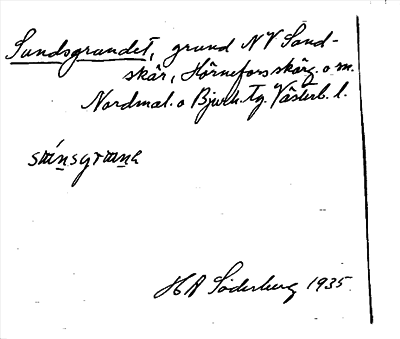 Sandsgrundet, grund NV Sand-
skär, Hörnefors skärg. o. m.
Nordmal. o Bjurh. tg. Västerb. l.
H A Söderberg 1935.